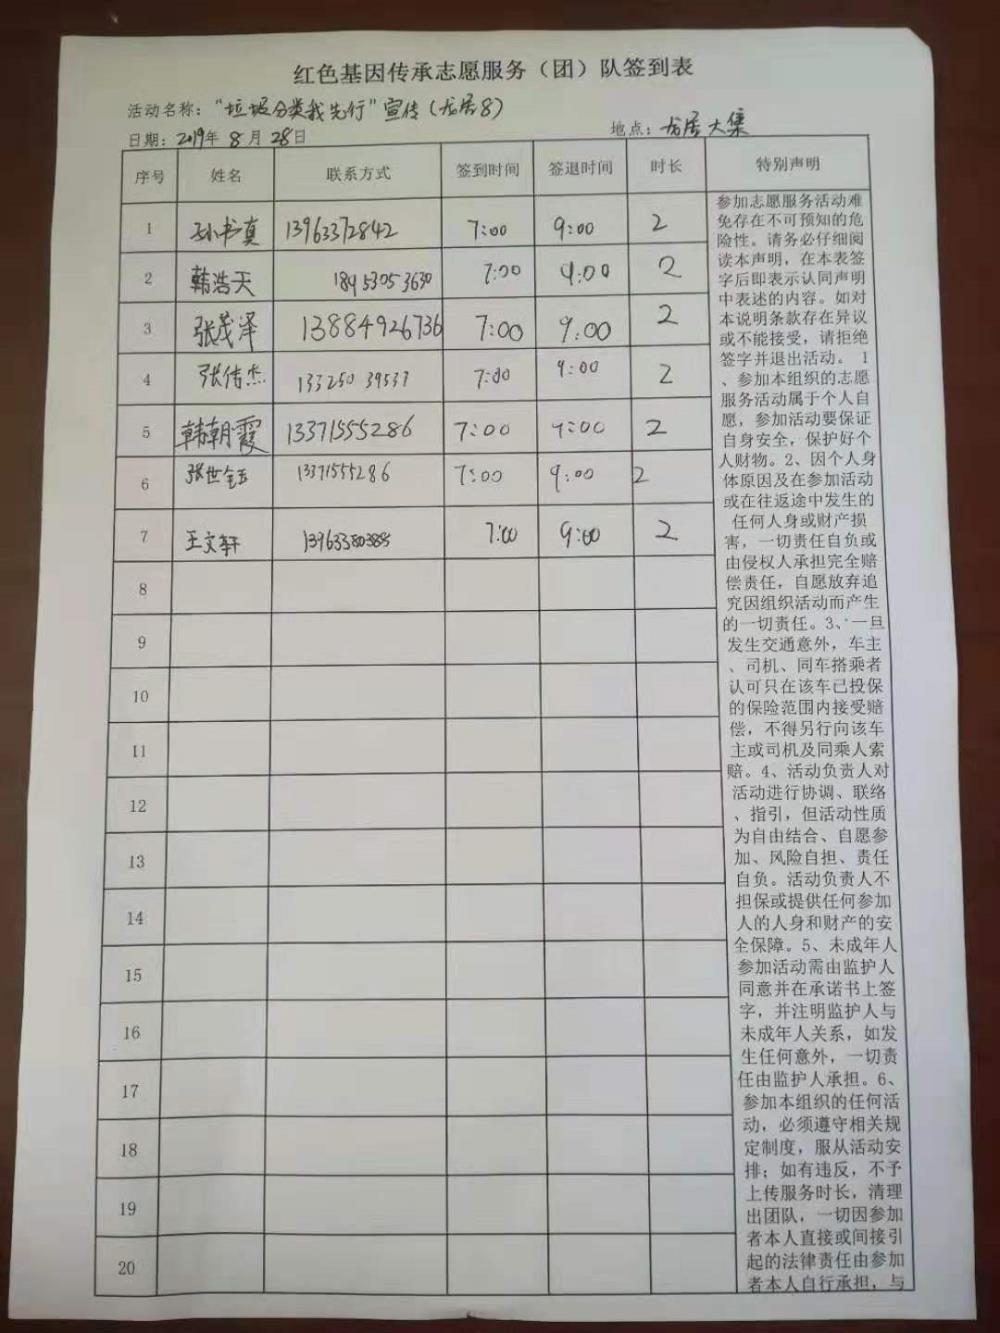 红色基因传承志愿服务（团）队签到表
活动名称：“垃圾分类我先行”宣传（龙居8）
日期：2019年 8月 28日 地点：龙居大集
序号 姓名 联系方式 签到时间 签退时间 时长 特别声明
1 孙书真 13963372842 7:00 9:00 2
2 韩浩天 18953053630 7:00 9:00 2
3 张茂泽 13884926736 7:00 9:00 2
4 张传杰 13325039537 7:00 9:00 2
5 韩朝霞 13371555286 7:00 9:00 2
6 张世全 13371555286 7:00 9:00 2
7 王文轩 7:00 9:00 2
8
9
10
11
12
13
14
15
16
17
18
19
20
参加志愿服务活动难
免存在不可预知的危
险性。请务必仔细阅
读本声明，在本表签
字后即表示认同声明
中表述的内容。如对
本说明条款存在异议
或不能接受，请拒绝
签字并退出活动。 1
、参加本组织的志愿
服务活动属于个人自
愿，参加活动要保证
自身安全，保护好个
人财物。2、因个人身
体原因及在参加活动
或在往返途中发生的
任何人身或财产损
害，一切责任自负或
由侵权人承担完全赔
偿责任，自愿放弃追
究因组织活动而产生
的一切责任。3、一旦
发生交通意外，车主
、司机、同车搭乘者
认可只在该车已投保
的保险范围内接受赔
偿，不得另行向该车
主或司机及同乘人索
赔。4、活动负责人对
活动进行协调、联络
、指引，但活动性质
为自由结合、自愿参
加、风险自担、责任
自负。活动负责人不
担保或提供任何参加
人的人身和财产的安
全保障。5、未成年人
参加活动需由监护人
同意并在承诺书上签
字，并注明监护人与
未成年人关系，如发
生任何意外，一切责
任由监护人承担。6、
参加本组织的任何活
动，必须遵守相关规
定制度，服从活动安
排；如有违反，不予
上传服务时长，清理
出团队，一切因参加
者本人直接或间接引
起的法律责任由参加
者本人自行承担，与